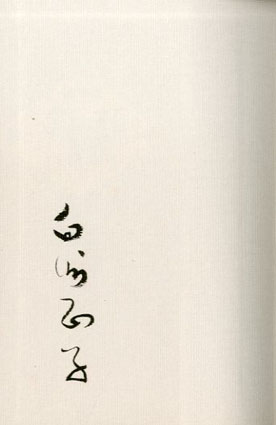 白洲正子